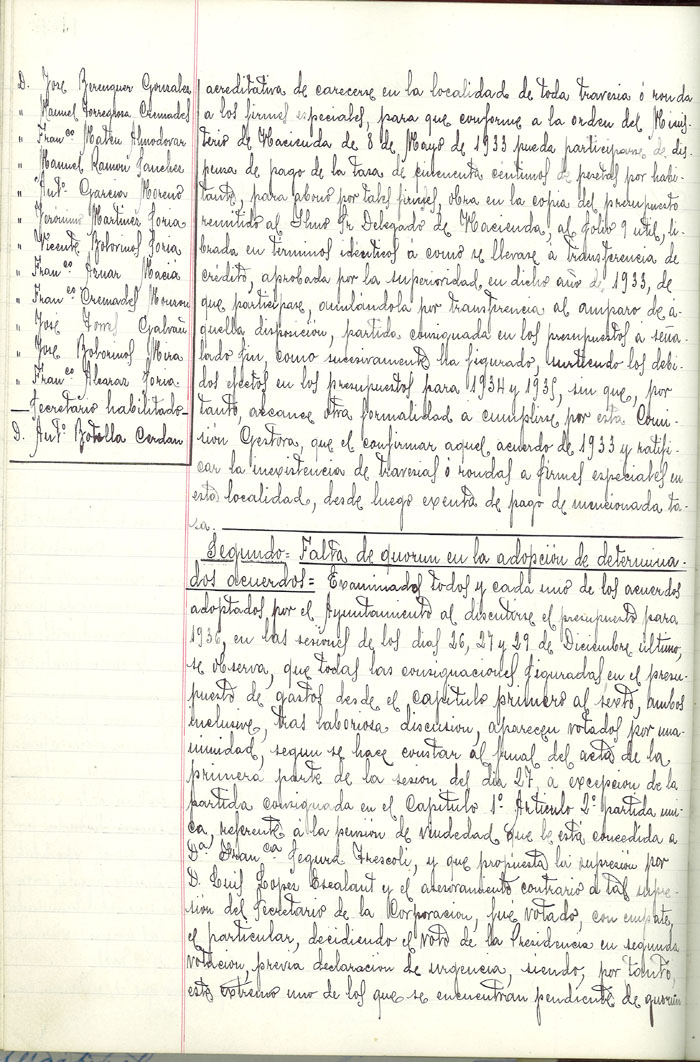 D. José Berenguer Gonzalez
" Manuel Torregrosa Cremades
" Fran.co Mateu Almodovar
" Manuel Ramón Sanchez
" Ant.º Garcia Moreno
" Jerónimo Martinez Soria
" Vicente Botormos Soria
" Fran.co Aznar Maciá
" Fran.co Cremades
" José Torres Galvañ
" Jose Botormos Mira
" Fran.co Alcaraz Soria
Secretario habilitado
D. Ant.º Botella Cerdan
acreditativa de carecerse en la localidad de toda travesia ó ronda
a los firmes especiales, para que conforme a la orden del Minis-
terio de Hacienda de 8 de Mayo de 1933 pueda participarse de dis-
pensa de pago de la tasa de cincuenta centimos de pesetas por habi-
tante, para abono por tales firmes, obra en la copia del presupuesto
remitido al Ilmo Sr Delegado de Hacienda, al folio 9 util, li-
brada en términos idénticos á como se llevase á transferencia de
crédito, aprobada por la superioridad en dicho año de 1933, de
que participase, anulándola por transferencia al amparo de a-
quella disposición, partida consignada en los presupuestos á seña-
lado fin, como sucesivamente ha figurado, surtiendo los debi-
dos efectos en los presupuestos para 1934 y 1935, sin que, por
tanto, alcance otra formalidad a cumplirse por esta Comi-
sión Gestora, que el confirmar aquel acuerdo de 1933 y ratifi-
car la inexistencia de travesias ó rondas a firmes especiales en
esta localidad, desde luego exenta de pago de mencionada ta-
sa.
Segundo= Falta de quorun en la adopción de determina-
dos acuerdos= Examinados todos y cada uno de los acuerdos
adoptados por el Ayuntamiento al discutirse el presupuesto para
1936, en las sesiones de los dias 26, 27 y 29 de Diciembre último,
se observa, que todas las consignaciones figuradas en el presu-
puesto de gastos desde el capitulo primero al sexto, ambos
inclusive, tras laboriosa discusion, aparecen votados por una-
nimidad, segun se hace constar al final del acta de la
primera parte de la sesion del dia 27, á excepcion de la
partida consignada en el Capitulo 1º Articulo 2º partida uni-
ca, referente á la pensión de viudedad que le está concedida a
Dª Fran.ca Segura Frescoli, y que propuesta la supresion por
D. Luis Lopez Escalant y el asesoramiento contrario a tal supre-
sión del Secretario de la Corporacion, fué votado, con empate,
el particular, decidiendo el voto de la Presidencia en segunda
votacion, previa declaracion de urgencia, siendo, por tanto,
este extremo uno de los que se encuentran pendiente de quorun